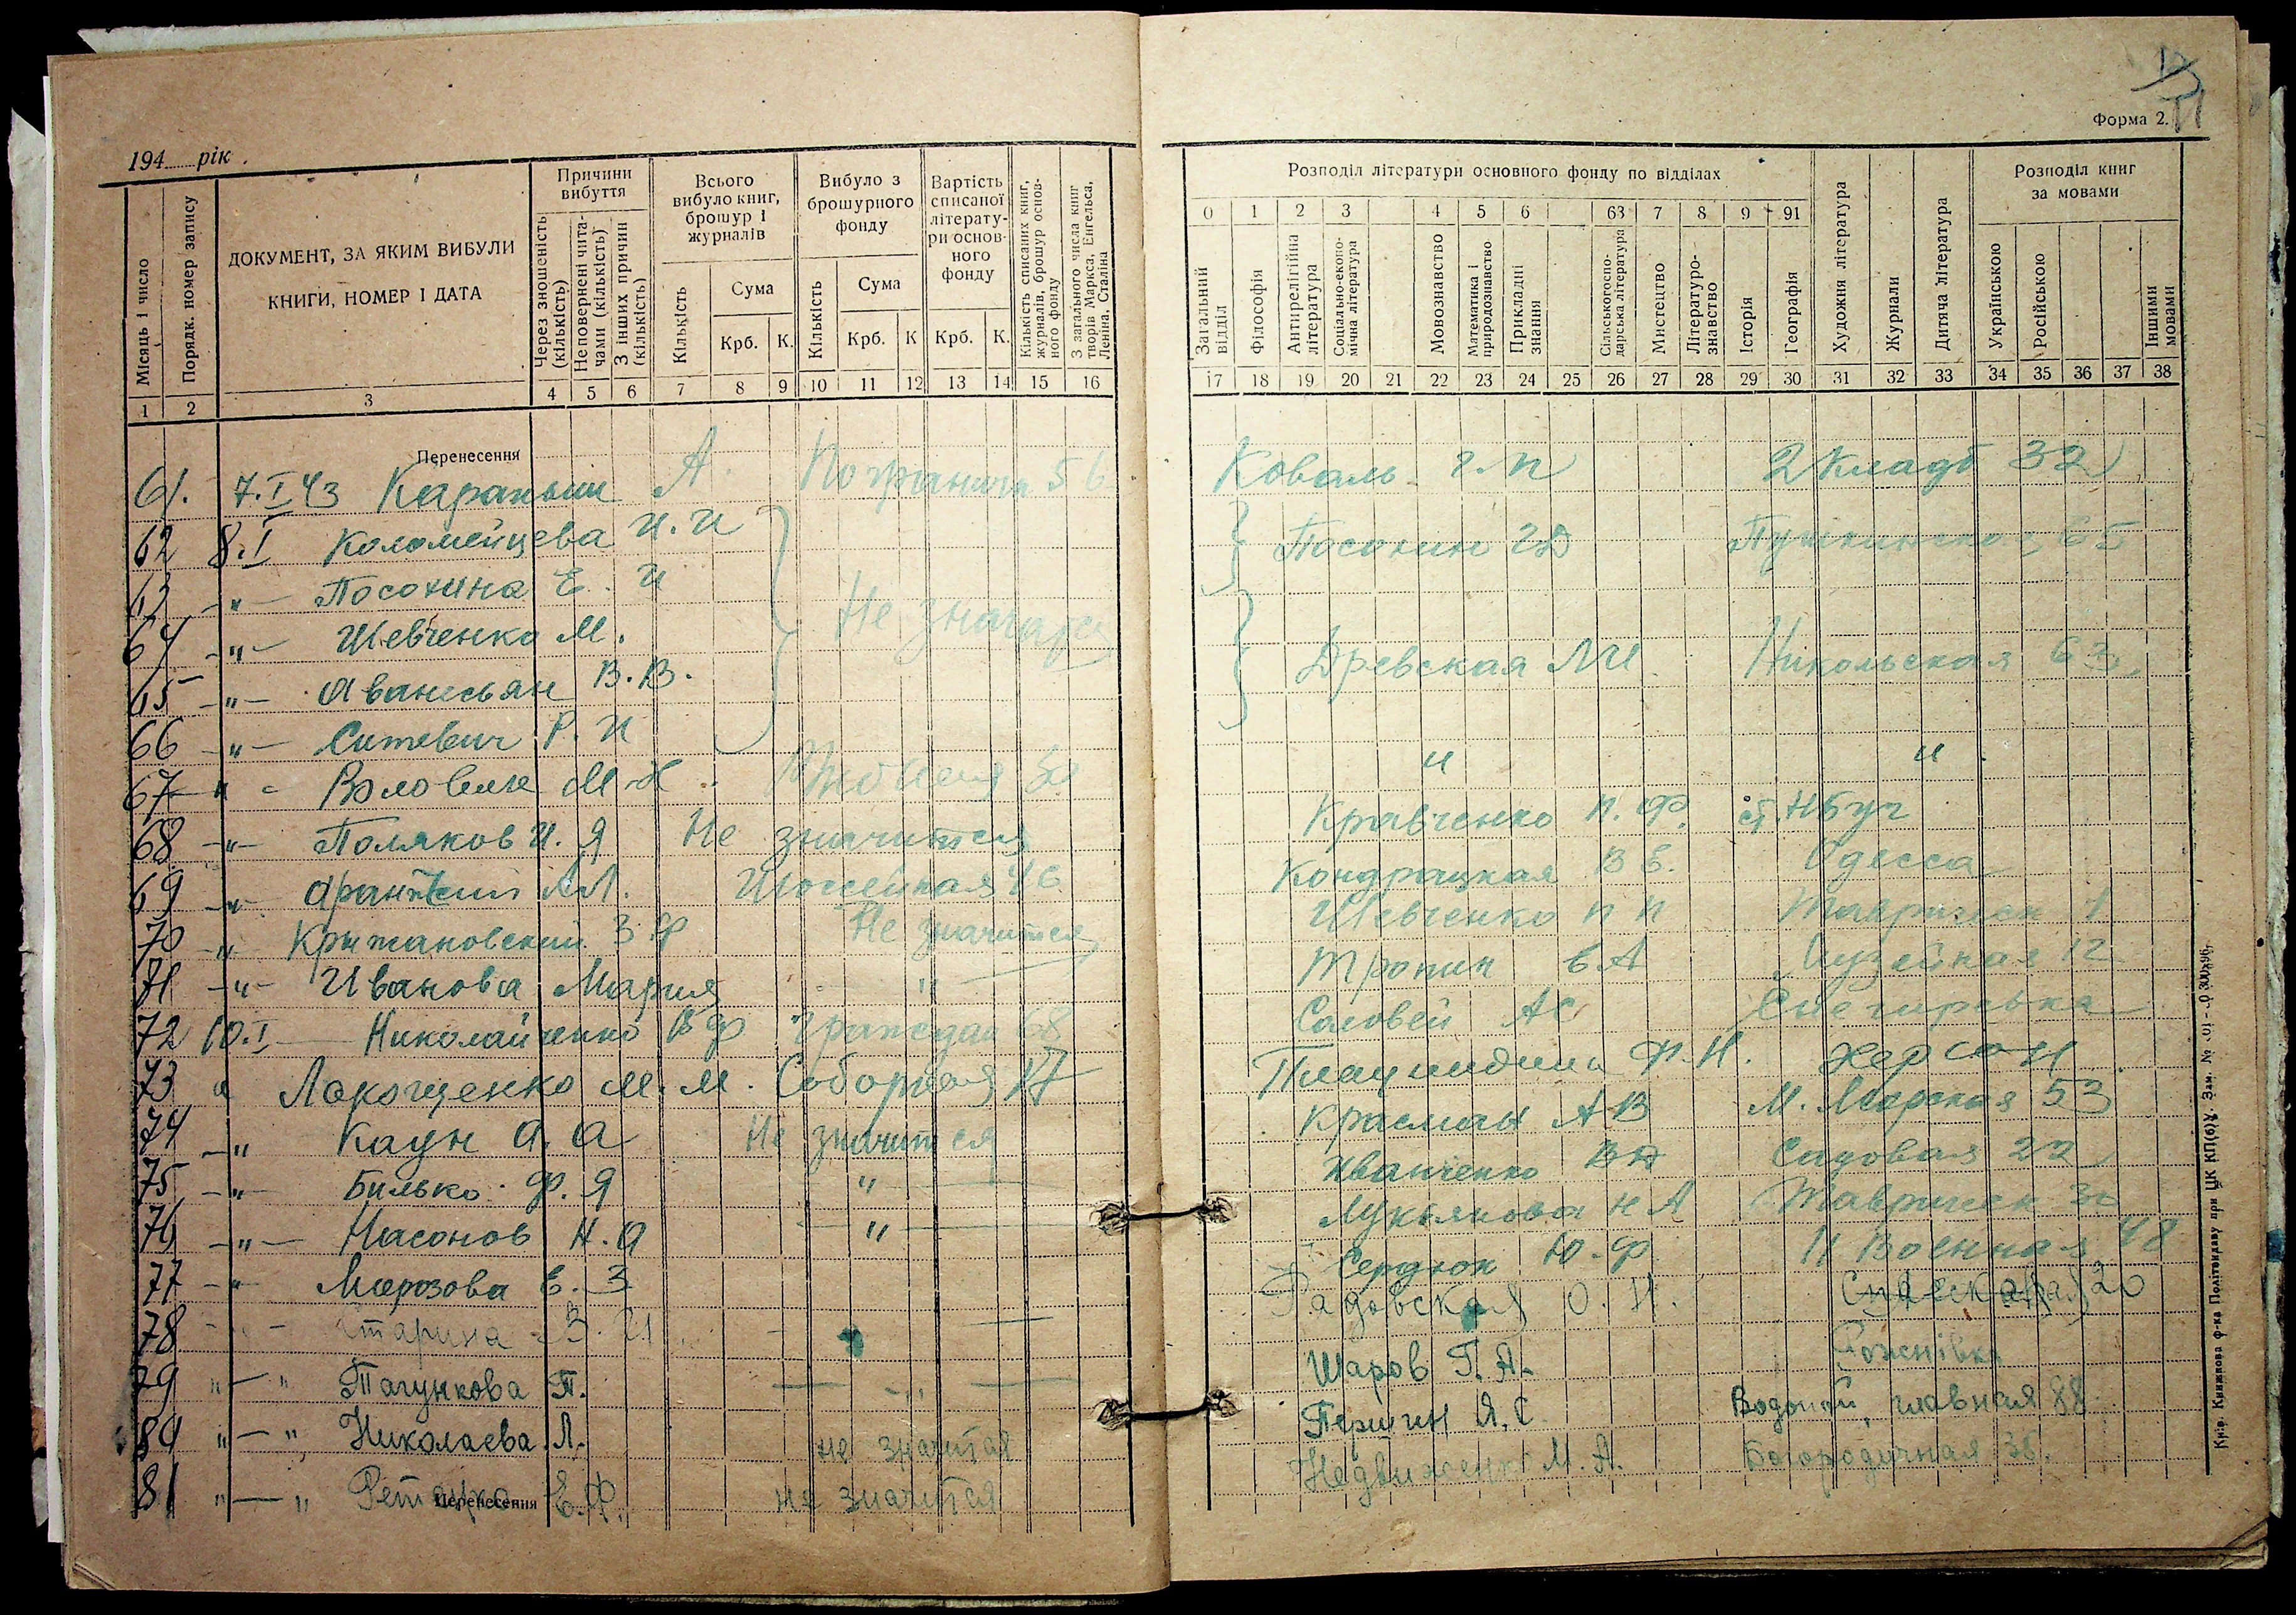 194 рік.
Місяць і число
Порядк. номер запису
ДОКУМЕНТ, ЗА ЯКИМ ВИБУЛИ
КНИГИ, НОМЕР І ДАТА
Причини
вибуття
Через зношеність
(кількість)
Неповернені чита-
чами (кількість)
З інших причин
(кількість)
Всього
вибуло книг,
брошур і
журналів
Кількість
Сума
Крб. К.
Вибуло з
брошурного
фонду
Кількість
Сума
Крб. К
Вартість
списаної
літерату-
ри основ-
ного
фонду
Крб. К.
Кількість списаних книг,
журналів, брошур основ-
ного фонду
З загального числа книг
творів Маркса, Енгельса,
Леніна, Сталіна
1 2 3 4 5 6 7 8 9 10 11 12 13 14 15 16
Перенесення
61. 7.I 43 А. 56
62 8.I Коломейцева И.И
63 -"- Посохина Е. И
64 -"- Шевченко М.
Не значатся
65 -"- Аванесьян В.В.
66 -"- Ситевич Р. И
67 -"- М
68 -"- Поляков И. Я Не значится
69 -"-
70 -"- Крижановский З Ф Не значится
71 -"- Иванова Мария -"-
72 10.I Николайченко В Ф Граждан 68
73 " М. М. Соборная 17
74 -"- Каун А. А Не значится
75 -"- Билько Ф. Я -"-
76 -"- Насонов Н. А -"-
77 -"- Морозова Е. З
78
79 "-" Пагункова П. -"-
80 "-" Николаева Л. не значится
81 "-" Е.Ф. не значится
Перенесення
Форма 2.
Розподіл літератури основного фонду по відділах
0 1 2 3 4 5 6 63 7 8 9 91
Загальний
відділ
Філософія
Антирелігійна
література
Соціально-еконо-
мічна література
Мовознавство
Математика і
природознавство
Прикладні
знання
Сільськогоспо-
дарська література
Мистецтво
Літературо-
знавство
Історія
Географія
Художня література
Журнали
Дитяча література
Розподіл книг
за мовами
Українською
Російською
Іншими
мовами
17 18 19 20 21 22 23 24 25 26 27 28 29 30 31 32 33 34 35 36 37 38
Коваль Г. П 2 Кладб 32
Посохин Г Д Пушкинская 65
Древская М И Никольская 63
" "
Кравченко П. Ф. ст. Н Буг
Кондрацкая В Е. Одесса
Шевченко П П Таврическ 1
Тропин Е. А Музейная 12
Соловей А С Снегировка
Ф. Н. Херсон
Красман А В М. Морская 53
Иванченко В Садовая 22
Лукьянова Н А Таврическ
Сердюк Ю. Ф Военная 48
Радовская О. Н. Спасская 20
Шаров Г. А.
Першин Я. С. Водопой, главная 88
Недвиженко М. А. Богородичная 36.
Крів. Книжкова ф-ка Політвидаву при ЦК КП(б)У. Зам. №